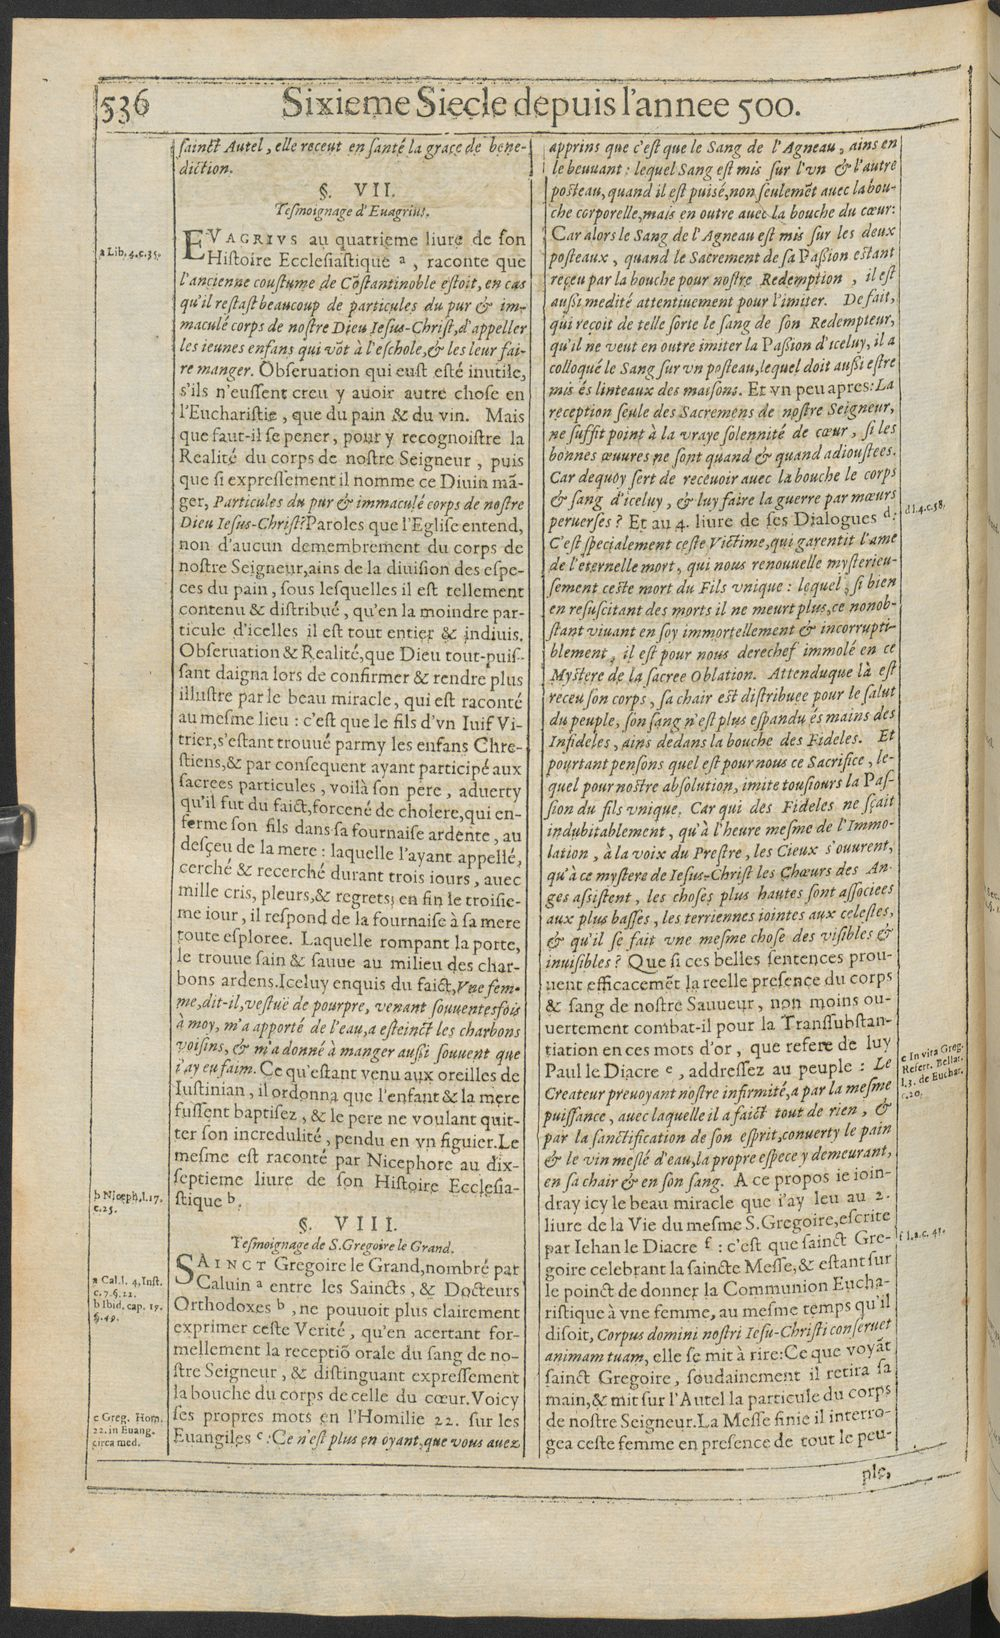 536
Sixieme Siecle depuis l'annee 500.
sainct Autel, elle receut en santé la grace de bene-
diction.
§. VII.
Tesmoignage d'Euagrius.
EVAGRIVS au quatrieme liure de son
Histoire Ecclesiastique a, raconte que
l'ancienne coustume de Cõstantinoble estoit, en cas
qu'il restast beaucoup de particules du pur & im-
maculé corps de nostre Dieu Iesus-Christ, d'appeller
les ieunes enfans qui võt à l'eschole, & les leur fai-
re manger. Obseruation qui eust esté inutile,
s'ils n'eussent creu y auoir autre chose en
l'Eucharistie, que du pain & du vin. Mais
que faut-il se pener, pour y recognoistre la
Realité du corps de nostre Seigneur, puis
que si expressement il nomme ce Diuin mã-
ger, Particules du pur & immaculé corps de nostre
Dieu Iesus-Christ? Paroles que l'Eglise entend,
non d'aucun demembrement du corps de
nostre Seigneur, ains de la diuision des espe-
ces du pain, sous lesquelles il est tellement
contenu & distribué, qu'en la moindre par-
ticule d'icelles il est tout entier & indiuis.
Obseruation & Realité, que Dieu tout-puis-
sant daigna lors de confirmer & rendre plus
illustre par le beau miracle, qui est raconté
au mesme lieu : c'est que le fils d'vn Iuif Vi-
trier, s'estant trouué parmy les enfans Chre-
stiens, & par consequent ayant participé aux
sacrees particules, voilà son pere, aduerty
qu'il fut du faict, forcené de cholere, qui en-
ferme son fils dans sa fournaise ardente, au
desçeu de la mere : laquelle l'ayant appellé,
cerché & recerché durant trois iours, auec
mille cris, pleurs, & regrets; en fin le troisie-
me iour, il respond de la fournaise à sa mere
toute esploree. Laquelle rompant la porte,
le trouue sain & sauue au milieu des char-
bons ardens. Iceluy enquis du faict, Vne fem-
me, dit-il, vestuë de pourpre, venant souuentesfois
à moy, m'a apporté de l'eau, a esteinct les charbons
voisins, & m'a donné à manger aussi souuent que
i'ay eu faim. Ce qu'estant venu aux oreilles de
Iustinian, il ordonna que l'enfant & la mere
fussent baptisez, & le pere ne voulant quit-
ter son incredulité, pendu en vn figuier. Le
mesme est raconté par Nicephore au dix-
septieme liure de son Histoire Ecclesia-
stique b.
§. VIII.
Tesmoignage de S. Gregoire le Grand.
SAINCT Gregoire le Grand, nombré par
Caluin a entre les Saincts, & Docteurs
Orthodoxes b, ne pouuoit plus clairement
exprimer ceste Verité, qu'en acertant for-
mellement la receptiõ orale du sang de no-
stre Seigneur, & distinguant expressement
la bouche du corps de celle du cœur. Voicy
ses propres mots en l'Homilie 22. sur les
Euangiles c : Ce n'est plus en oyant, que vous auez
a Lib. 4. c. 35.
b Niceph. l. 17.
c. 25.
a Cal. l. 4. Inst.
c. 7. §. 22.
b Ibid. cap. 17.
§. 49.
c Greg. Hom.
22. in Euang.
circa med.
apprins que c'est que le Sang de l'Agneau, ains en
le beuuant : lequel Sang est mis sur l'vn & l'autre
posteau, quand il est puisé, non seulemẽt auec la bou-
che corporelle, mais en outre auec la bouche du cœur:
Car alors le Sang de l'Agneau est mis sur les deux
posteaux, quand le Sacrement de sa Passion estant
reçeu par la bouche pour nostre Redemption, il est
aussi medité attentiuement pour l'imiter. De fait,
qui reçoit de telle sorte le sang de son Redempteur,
qu'il ne veut en outre imiter la Passion d'iceluy, il a
colloqué le Sang sur vn posteau, lequel doit aussi estre
mis és linteaux des maisons. Et vn peu apres: La
reception seule des Sacremens de nostre Seigneur,
ne suffit point à la vraye solennité de cœur, si les
bonnes œuures ne sont quand & quand adioustees.
Car dequoy sert de receuoir auec la bouche le corps
& sang d'iceluy, & luy faire la guerre par mœurs
peruerses ? Et au 4. liure de ses Dialogues d :
C'est specialement ceste Victime, qui garentit l'ame
de l'eternelle mort, qui nous renouuelle mysterieu-
sement ceste mort du Fils vnique : lequel, si bien
en resuscitant des morts il ne meurt plus, ce nonob-
stant viuant en soy immortellement & incorrupti-
blement, il est pour nous derechef immolé en ce
Mystere de la sacree Oblation. Attenduque là est
receu son corps, sa chair est distribuee pour le salut
du peuple, son sang n'est plus espandu és mains des
Infideles, ains dedans la bouche des Fideles. Et
pourtant pensons quel est pour nous ce Sacrifice, le-
quel pour nostre absolution, imite tousiours la Pas-
sion du fils vnique. Car qui des Fideles ne sçait
indubitablement, qu'à l'heure mesme de l'Immo-
lation, à la voix du Prestre, les Cieux s'ouurent,
qu'à ce mystere de Iesus-Christ les Chœurs des An-
ges assistent, les choses plus hautes sont associees
aux plus basses, les terriennes iointes aux celestes,
& qu'il se fait vne mesme chose des visibles &
inuisibles ? Que si ces belles sentences prou-
uent efficacemẽt la reelle presence du corps
& sang de nostre Sauueur, non moins ou-
uertement combat-il pour la Transsubstan-
tiation en ces mots d'or, que refere de luy
Paul le Diacre e, addressez au peuple : Le
Createur preuoyant nostre infirmité, a par la mesme
puissance, auec laquelle il a faict tout de rien, &
par la sanctification de son esprit, conuerty le pain
& le vin meslé d'eau, la propre espece y demeurant,
en sa chair & en son sang. A ce propos ie ioin-
dray icy le beau miracle que i'ay leu au 2.
liure de la Vie du mesme S. Gregoire, escrite
par Iehan le Diacre f : c'est que sainct Gre-
goire celebrant la saincte Messe, & estant sur
le poinct de donner la Communion Eucha-
ristique à vne femme, au mesme temps qu'il
disoit, Corpus domini nostri Iesu-Christi conseruet
animam tuam, elle se mit à rire: Ce que voyãt
sainct Gregoire, soudainement il retira sa
main, & mit sur l'Autel la particule du corps
de nostre Seigneur. La Messe finie il interro-
gea ceste femme en presence de tout le peu-
ple,
d l. 4. c. 58.
e In vita Greg.
Refert. Bellar.
l. 3. de Euchar.
c. 20.
f l. 2. c. 41.